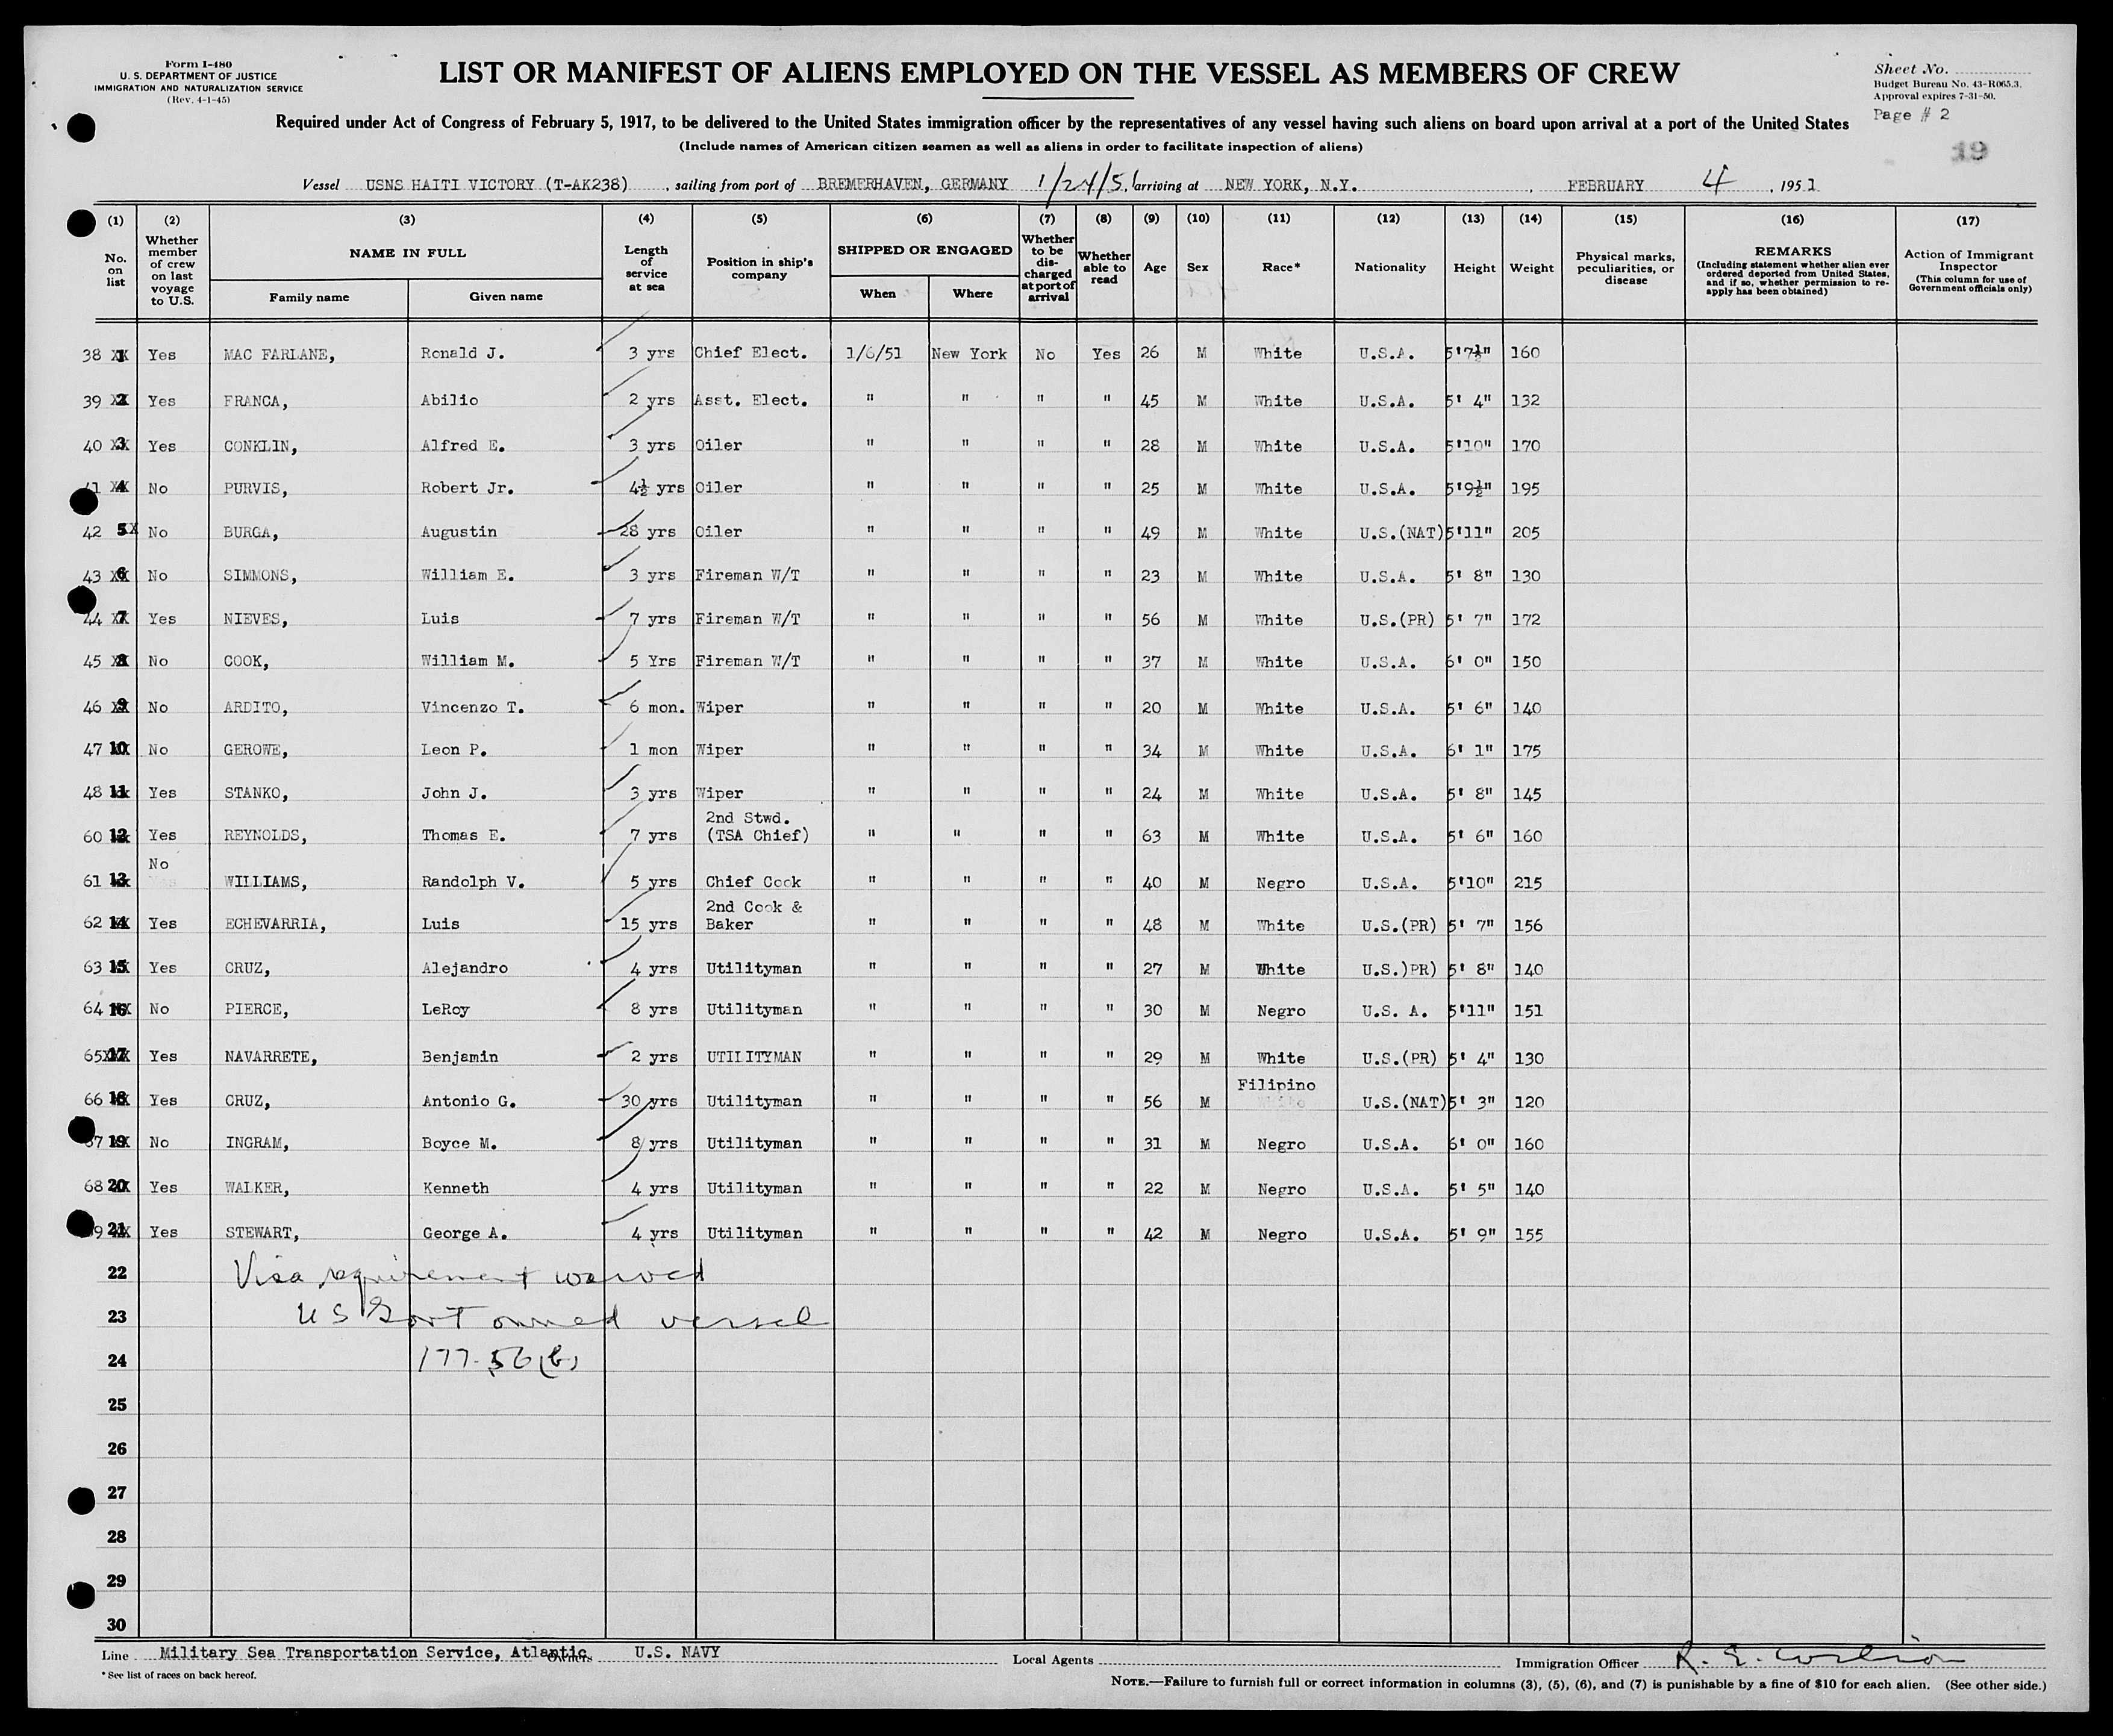 Form I-480
U. S. DEPARTMENT OF JUSTICE
IMMIGRATION AND NATURALIZATION SERVICE
(Rev. 4-1-45)
LIST OR MANIFEST OF ALIENS EMPLOYED ON THE VESSEL AS MEMBERS OF CREW
Sheet No.
Budget Bureau No. 43-R065.3.
Approval expires 7-31-50.
Page # 2
19
Required under Act of Congress of February 5, 1917, to be delivered to the United States immigration officer by the representatives of any vessel having such aliens on board upon arrival at a port of the United States
(Include names of American citizen seamen as well as aliens in order to facilitate inspection of aliens)
Vessel USNS HAITI VICTORY (T-AK238), sailing from port of BREMERHAVEN, GERMANY 1/24/51, arriving at NEW YORK, N.Y., FEBRUARY 4, 1951
(1) (2) (3) (4) (5) (6) (7) (8) (9) (10) (11) (12) (13) (14) (15) (16) (17)
No. on list
Whether member of crew on last voyage to U.S.
NAME IN FULL
Family name
Given name
Length of service at sea
Position in ship's company
SHIPPED OR ENGAGED
When
Where
Whether to be discharged at port of arrival
Whether able to read
Age
Sex
Race*
Nationality
Height
Weight
Physical marks, peculiarities, or disease
REMARKS
(Including statement whether alien ever ordered deported from United States, and if so, whether permission to reapply has been obtained)
Action of Immigrant Inspector
(This column for use of Government officials only)
38 1 Yes MAC FARLANE, Ronald J. 3 yrs Chief Elect. 1/6/51 New York No Yes 26 M White U.S.A. 5'7½" 160
39 2 Yes FRANCA, Abilio 2 yrs Asst. Elect. " " " " 45 M White U.S.A. 5' 4" 132
40 3 Yes CONKLIN, Alfred E. 3 yrs Oiler " " " " 28 M White U.S.A. 5'10" 170
41 4 No PURVIS, Robert Jr. 4½ yrs Oiler " " " " 25 M White U.S.A. 5'9½" 195
42 5 No BURGA, Augustin 28 yrs Oiler " " " " 49 M White U.S.(NAT) 5'11" 205
43 6 No SIMMONS, William E. 3 yrs Fireman W/T " " " " 23 M White U.S.A. 5' 8" 130
44 7 Yes NIEVES, Luis 7 yrs Fireman W/T " " " " 56 M White U.S.(PR) 5' 7" 172
45 8 No COOK, William M. 5 Yrs Fireman W/T " " " " 37 M White U.S.A. 6' 0" 150
46 9 No ARDITO, Vincenzo T. 6 mon. Wiper " " " " 20 M White U.S.A. 5' 6" 140
47 10 No GEROWE, Leon P. 1 mon Wiper " " " " 34 M White U.S.A. 6' 1" 175
48 11 Yes STANKO, John J. 3 yrs Wiper " " " " 24 M White U.S.A. 5' 8" 145
60 12 Yes REYNOLDS, Thomas E. 7 yrs 2nd Stwd. (TSA Chief) " " " " 63 M White U.S.A. 5' 6" 160
61 13 No WILLIAMS, Randolph V. 5 yrs Chief Cook " " " " 40 M Negro U.S.A. 5'10" 215
62 14 Yes ECHEVARRIA, Luis 15 yrs 2nd Cook & Baker " " " " 48 M White U.S.(PR) 5' 7" 156
63 15 Yes CRUZ, Alejandro 4 yrs Utilityman " " " " 27 M White U.S.)PR) 5' 8" 140
64 16 No PIERCE, LeRoy 8 yrs Utilityman " " " " 30 M Negro U.S. A. 5'11" 151
65 17 Yes NAVARRETE, Benjamin 2 yrs UTILITYMAN " " " " 29 M White U.S.(PR) 5' 4" 130
66 18 Yes CRUZ, Antonio G. 30 yrs Utilityman " " " " 56 M Filipino U.S.(NAT) 5' 3" 120
67 19 No INGRAM, Boyce M. 8 yrs Utilityman " " " " 31 M Negro U.S.A. 6' 0" 160
68 20 Yes WALKER, Kenneth 4 yrs Utilityman " " " " 22 M Negro U.S.A. 5' 5" 140
69 21 Yes STEWART, George A. 4 yrs Utilityman " " " " 42 M Negro U.S.A. 5' 9" 155
22 Visa requirement waived
23 US Govt owned vessel
24 177.56(b)
25
26
27
28
29
30
Line Military Sea Transportation Service, Atlantic Owners U.S. NAVY Local Agents Immigration Officer R. E. Wilson
*See list of races on back hereof.
NOTE.—Failure to furnish full or correct information in columns (3), (5), (6), and (7) is punishable by a fine of $10 for each alien. (See other side.)